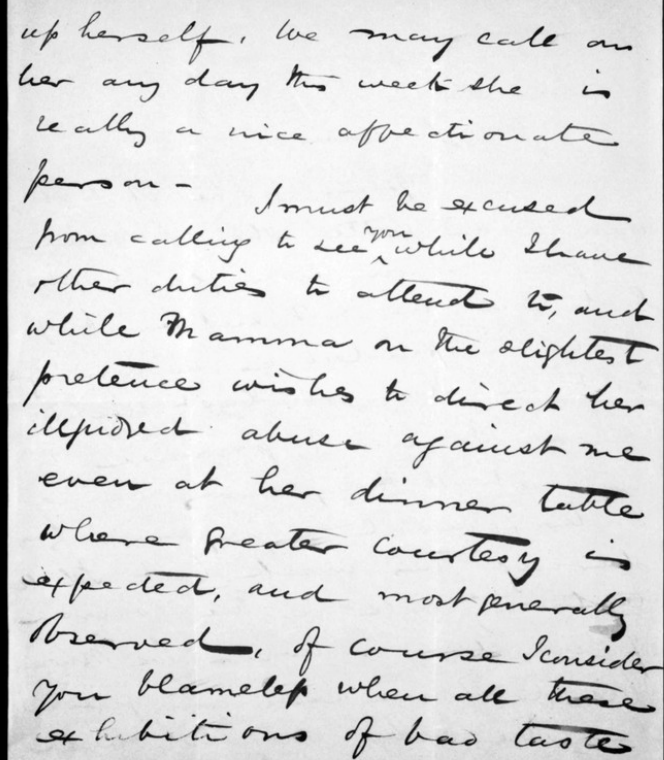 up herself. We may call on
her any day this week she is
really a nice affectionate
person -
I must be excused
from calling to see you while I have
other duties to attend to, and
while Mamma on the slightest
pretence wishes to direct her
illjudged abuse against me
even at her dinner table
where greater courtesy is
expected, and most generally
observed, of course I consider
you blameless when all these
exhibitions of bad taste